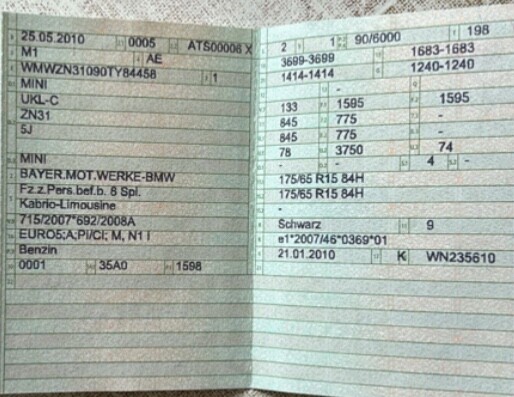 25.05.2010 0005 ATS00006 X
M1 AE
WMWZN31090TY84458 1
MINI
UKL-C
ZN31
5J
MINI
BAYER.MOT.WERKE-BMW
Fz.z.Pers.bef.b. 8 Spl.
Kabrio-Limousine
715/2007*692/2008A
EURO5;A;PI/CI; M, N1 I
Benzin
0001 35A0 1598
2 1 90/6000 198
3699-3699 1683-1683
1414-1414 1240-1240
- -
133 1595 1595
845 775 -
845 775 -
78 3750 74
- - 4 -
175/65 R15 84H
175/65 R15 84H
-
Schwarz 9
e1*2007/46*0369*01
21.01.2010 K WN235610